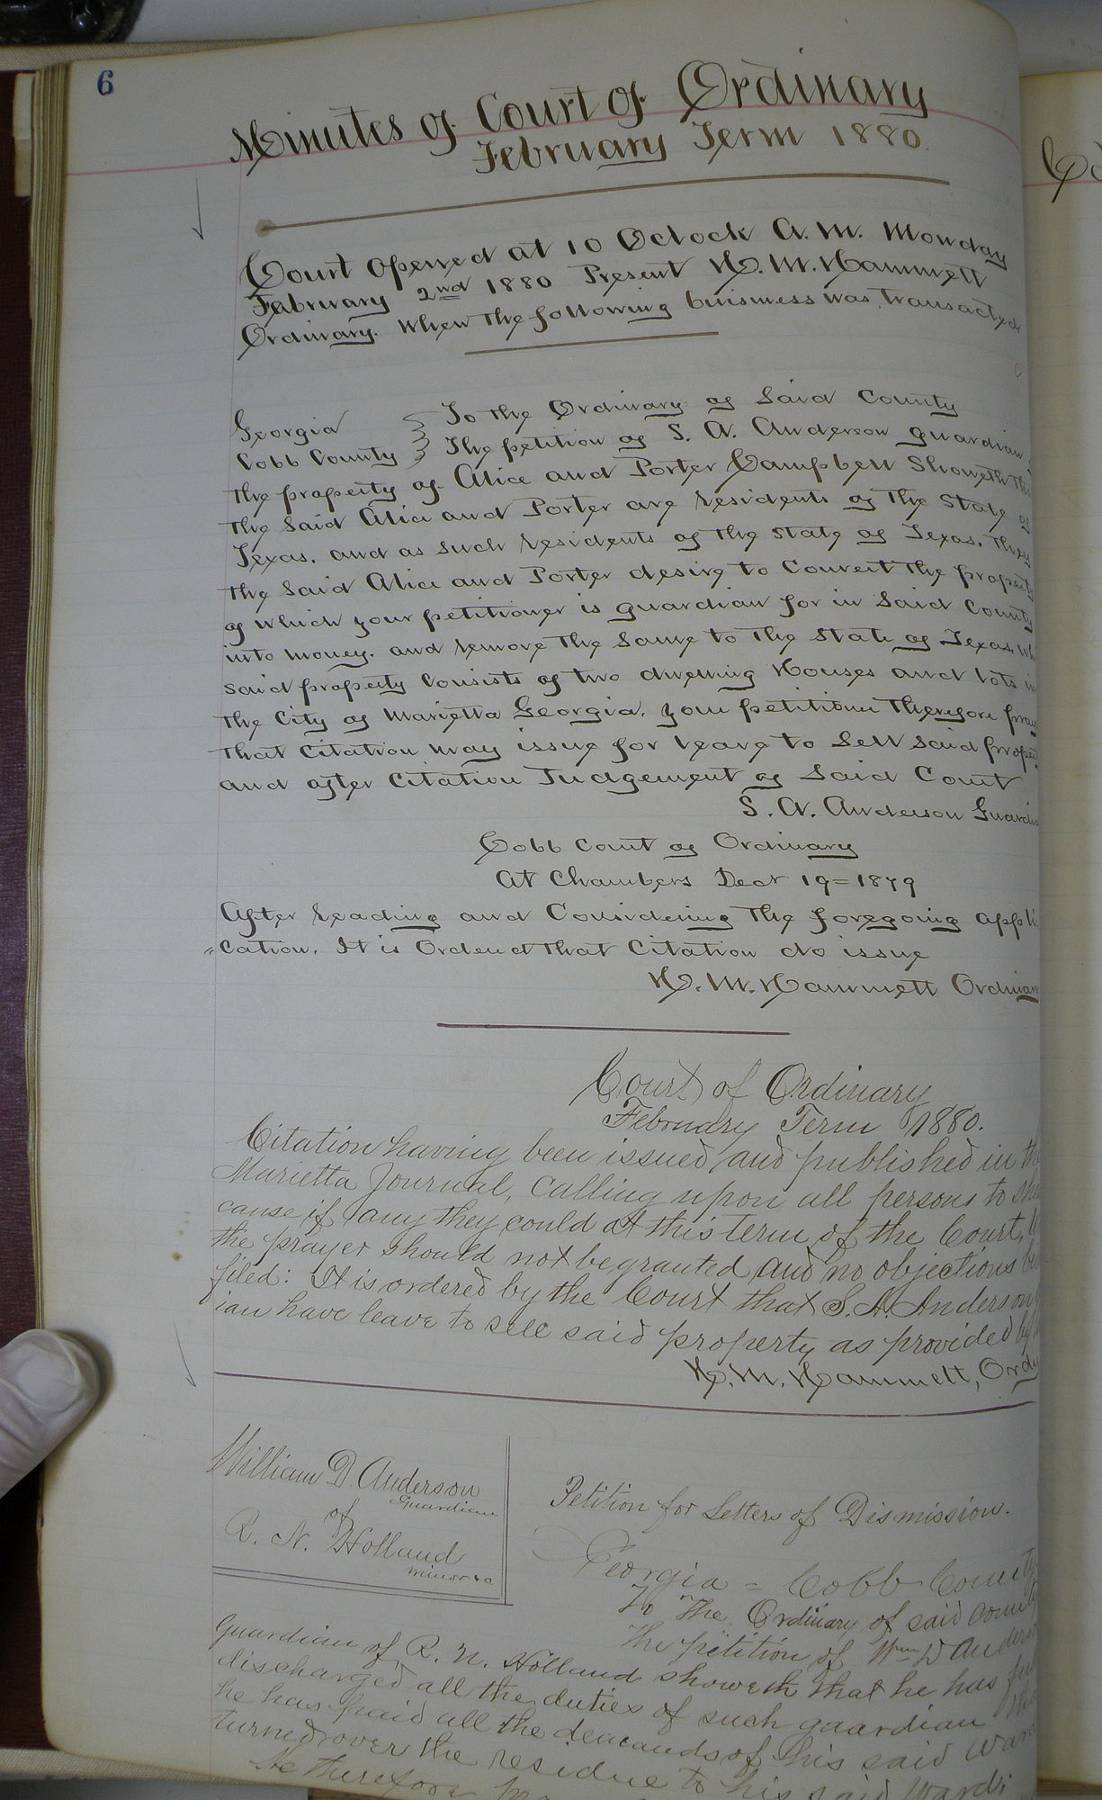 6
Minutes of Court of Ordinary
February Term 1880.
Court opened at 10 Oclock A.M. Monday
February 2nd 1880 Present H. M. Hammett
Ordinary. When the following buisness was transacted
Georgia } To the Ordinary of Said County
Cobb County } The petition of S. A. Anderson guardian
the property of Alice and Porter Campbell Showeth
the Said Alice and Porter are residents of the State of
Texas. and as such residents of the state of Texas. They
the Said Alice and Porter desire to Convert the property
of which your petitioner is guardian for in Said County
into money. and remove the same to the State of Texas.
said property Consists of two dwelling Houses and lots in
the City of Marietta Georgia. your petitioner therefore pray
that Citation may issue for leave to Sell said proper
and after Citation Judgement of Said Court
S. A. Anderson Guardia
Cobb Court of Ordinary
At Chambers Decr 19=1879
After reading and Considering the foregoing appli
"cation. It is Ordered that Citation do issue
H. M. Hammett Ordinar
Court of Ordinary
February Term 1880.
Citation having been issued and published in the
Marietta Journal, calling upon all persons to sho
cause if any they could at this term of the Court,
the prayer should not be granted and no objections be
filed: It is ordered by the Court that S. A. Anderson
ian have leave to sell said property as provided by
H. M. Hammett, Ordy
William D. Anderson
Guardian
of
R. N. Holland
minor &c
Petition for Letters of Dismission.
Georgia = Cobb County
To The Ordinary of said County
The petition of Wm D Anders
guardian of R. N. Holland showeth that he has ful
discharged all the duties of such guardian tha
he has paid all the demands of his said War
turned over the residue to his said Ward:
He therefore